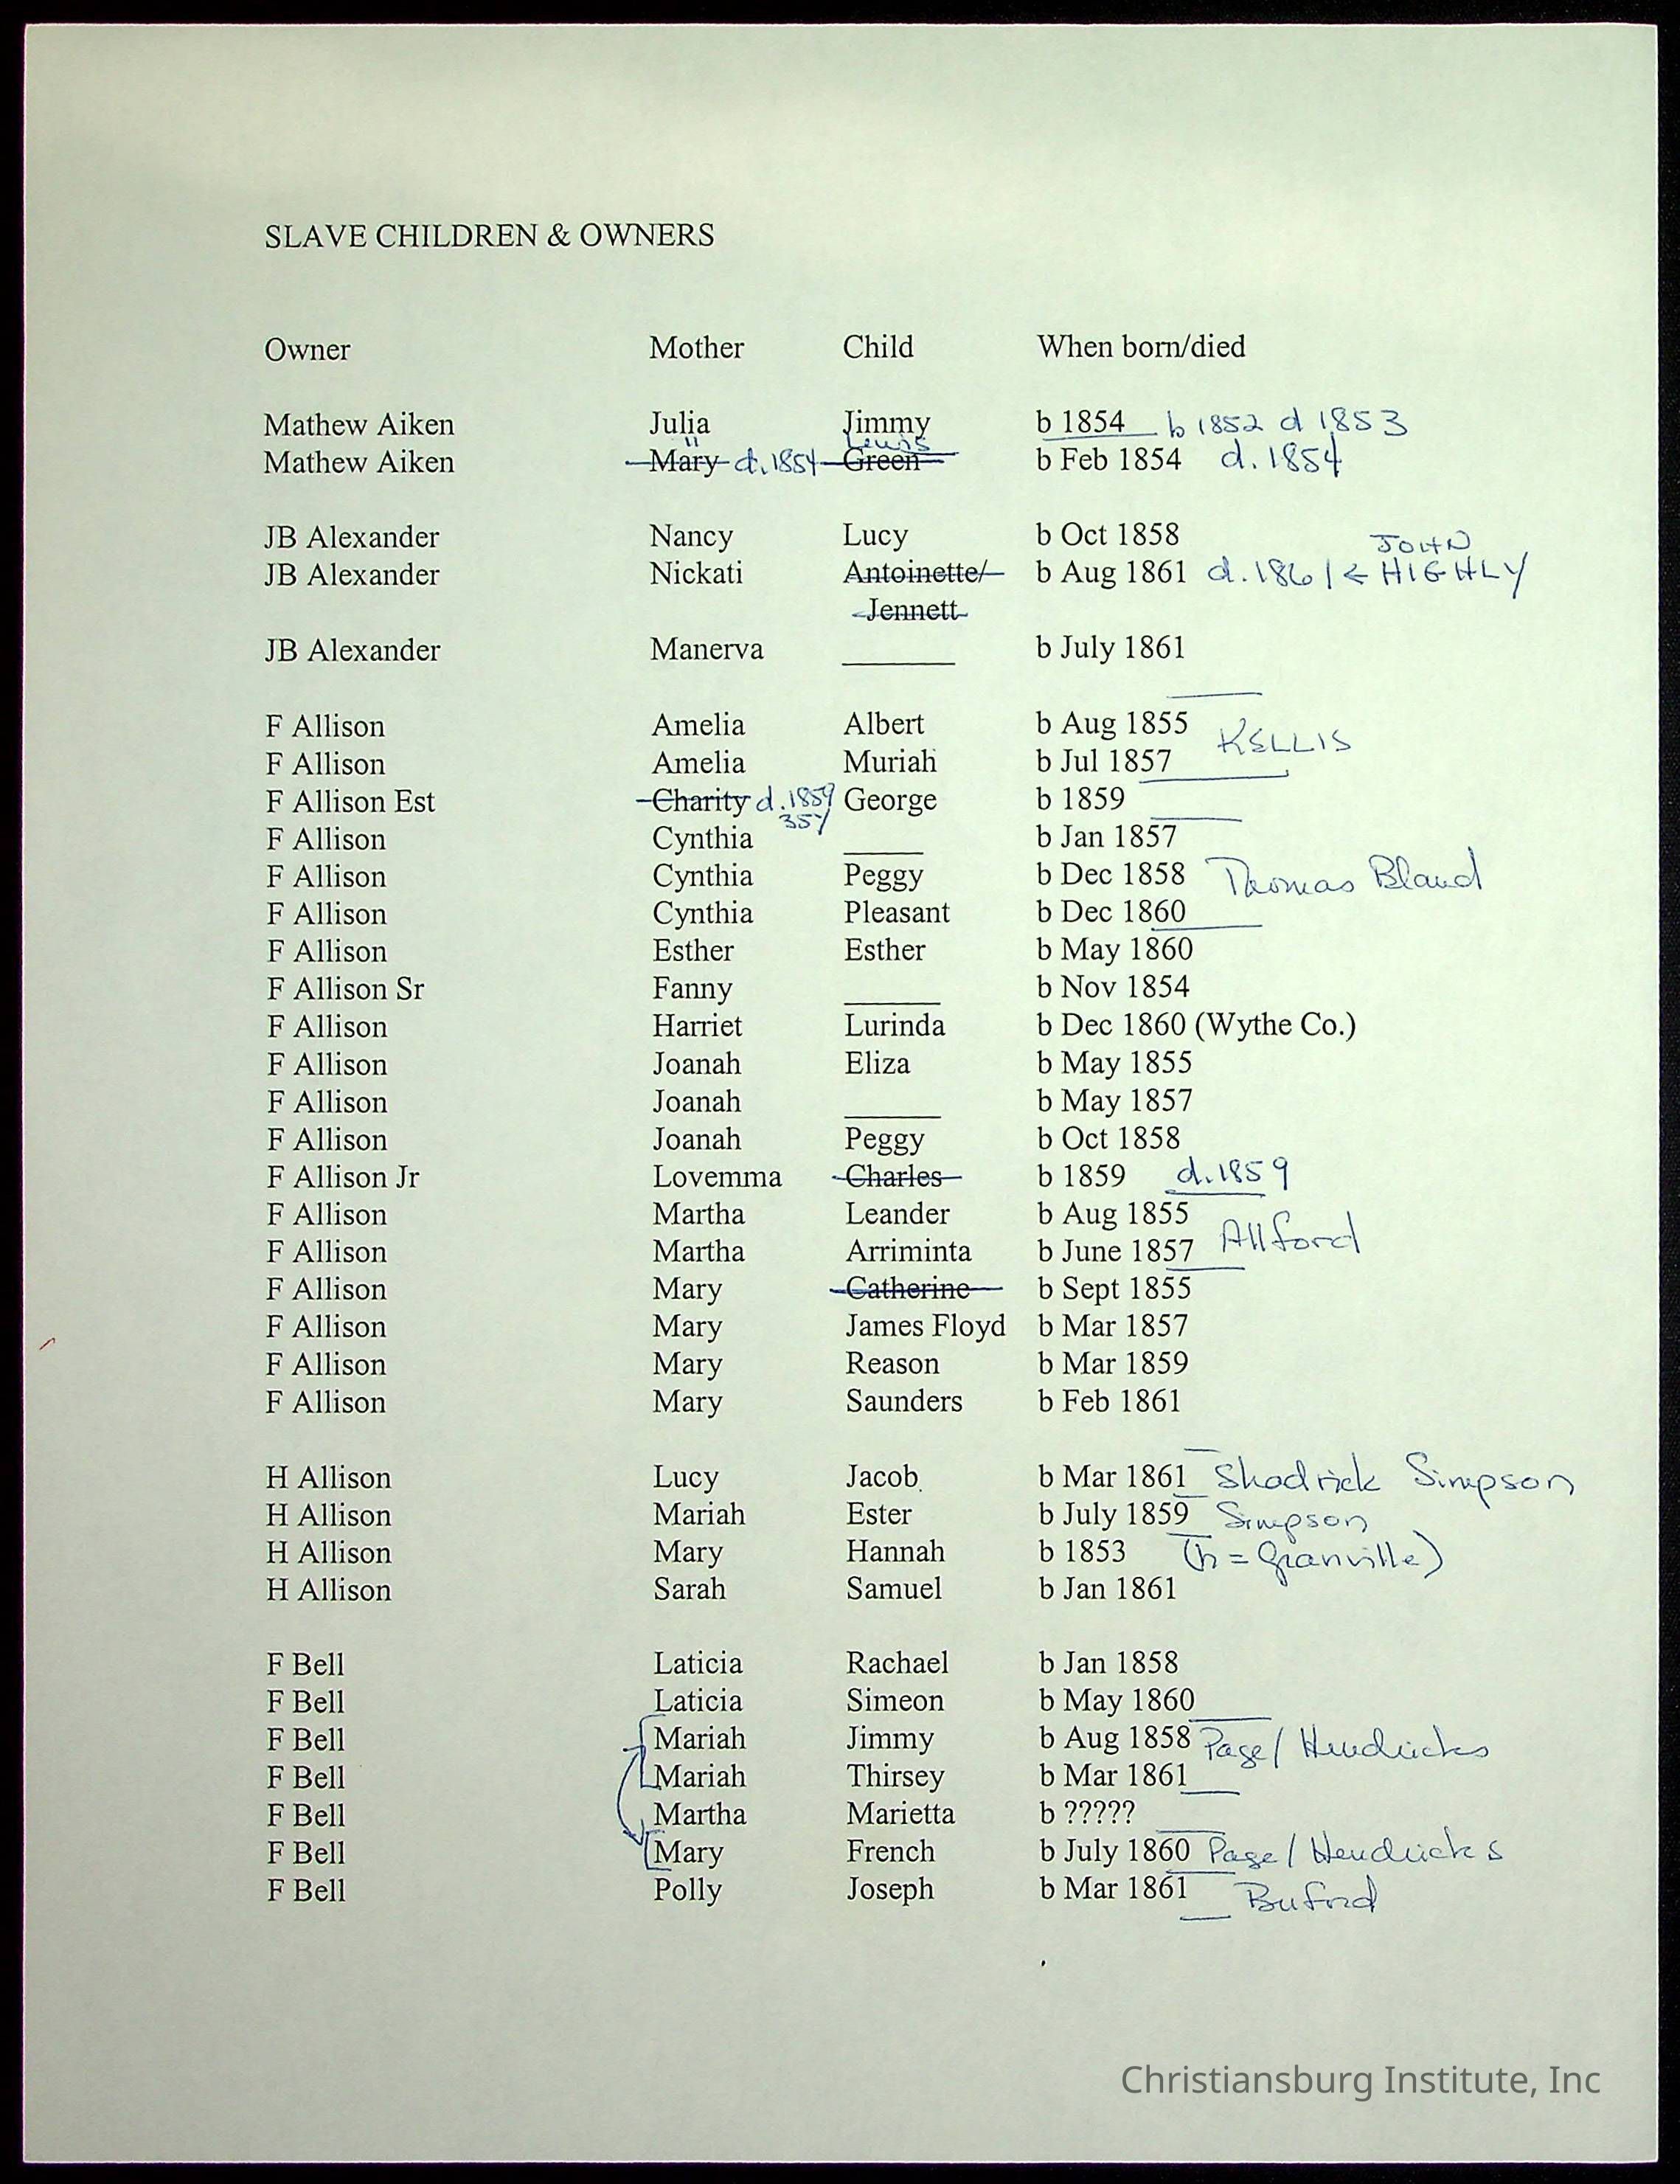 SLAVE CHILDREN & OWNERS
Owner Mother Child When born/died
Mathew Aiken Julia Jimmy b 1854 b 1852 d 1853
" Lewis
Mathew Aiken Mary d. 1854 Green b Feb 1854 d. 1854
JB Alexander Nancy Lucy b Oct 1858
JOHN
JB Alexander Nickati Antoinette/ b Aug 1861 d. 1861 ← HIGHLY
Jennett
JB Alexander Manerva ______ b July 1861
F Allison Amelia Albert b Aug 1855
KELLIS
F Allison Amelia Muriah b Jul 1857
F Allison Est Charity d. 1859 George b 1859
35y
F Allison Cynthia ______ b Jan 1857
F Allison Cynthia Peggy b Dec 1858 Thomas Bland
F Allison Cynthia Pleasant b Dec 1860
F Allison Esther Esther b May 1860
F Allison Sr Fanny ______ b Nov 1854
F Allison Harriet Lurinda b Dec 1860 (Wythe Co.)
F Allison Joanah Eliza b May 1855
F Allison Joanah ______ b May 1857
F Allison Joanah Peggy b Oct 1858
F Allison Jr Lovemma Charles b 1859 d. 1859
F Allison Martha Leander b Aug 1855
Allford
F Allison Martha Arriminta b June 1857
F Allison Mary Catherine b Sept 1855
F Allison Mary James Floyd b Mar 1857
F Allison Mary Reason b Mar 1859
F Allison Mary Saunders b Feb 1861
H Allison Lucy Jacob b Mar 1861 Shadrick Simpson
H Allison Mariah Ester b July 1859 Simpson
H Allison Mary Hannah b 1853 (h = Granville)
H Allison Sarah Samuel b Jan 1861
F Bell Laticia Rachael b Jan 1858
F Bell Laticia Simeon b May 1860
F Bell Mariah Jimmy b Aug 1858 Page/ Hendricks
F Bell Mariah Thirsey b Mar 1861
F Bell Martha Marietta b ?????
F Bell Mary French b July 1860 Page/ Hendricks
F Bell Polly Joseph b Mar 1861 Buford
Christiansburg Institute, Inc